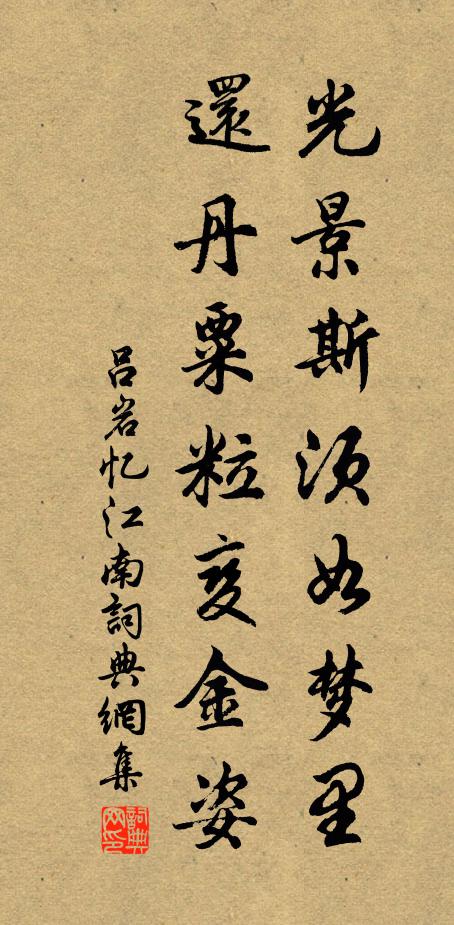 光景斯须如梦里
還丹粟粒变金姿
吕岩忆江南詞典網集
詞典网印